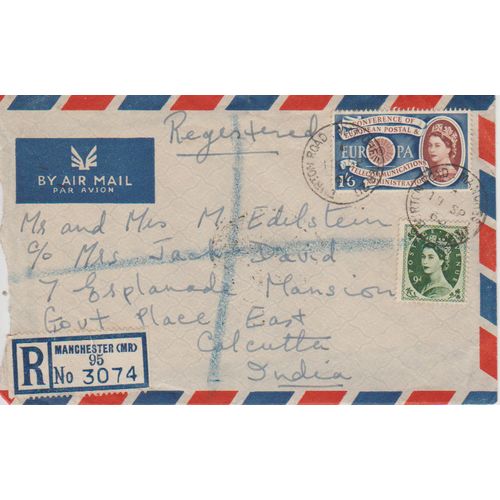 Registered
BY AIR MAIL
PAR AVION
CONFERENCE OF
EUROPEAN POSTAL &
EUROPA
TELECOMMUNICATIONS
ADMINISTRATIONS
1/6
POSTAGE
REVENUE
9D
19 SP
Mr and Mrs M. Edelstein
c/o Mrs Jack David
7 Esplanade Mansion
Govt Place East
Calcutta
India
R
MANCHESTER (MR)
95
No 3074